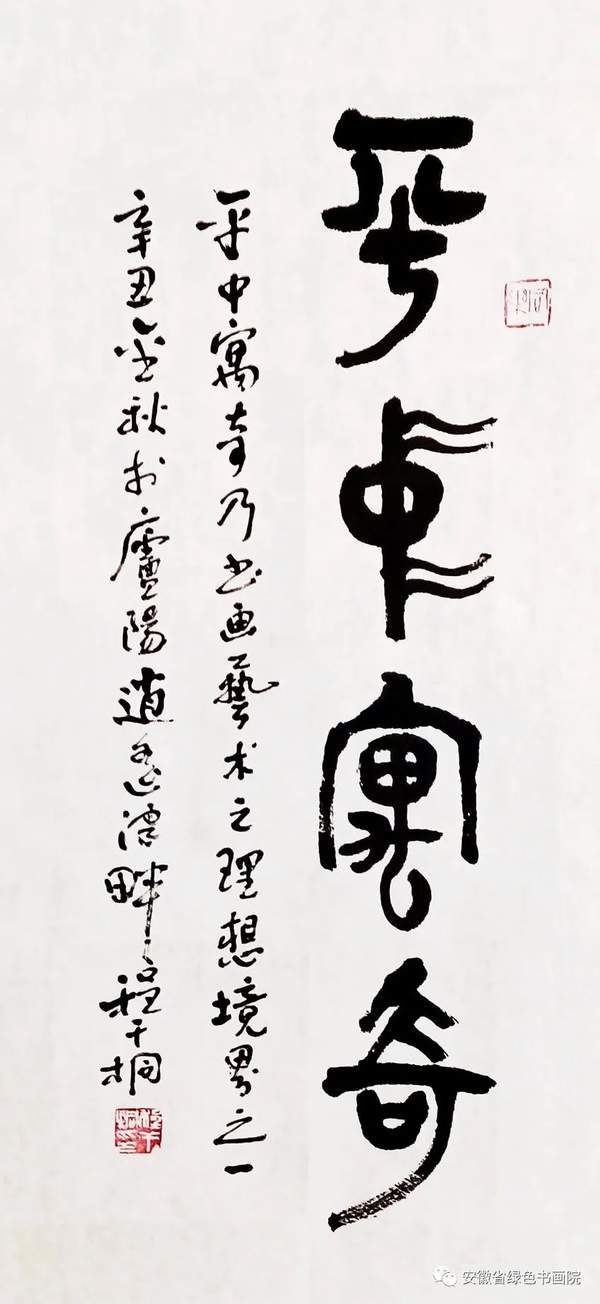 平中寓奇
平中寓奇乃书画藝术之理想境界之一
辛丑金秋于廬陽逍遥津畔程千桐
安徽省绿色书画院